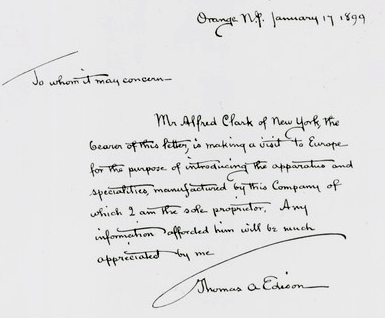 Orange N.J. January 17 1899
To whom it may concern—
Mr Alfred Clark of New York, the
bearer of this letter, is making a visit to Europe
for the purpose of introducing the apparatus and
specialities, manufactured by this Company of
which I am the sole proprietor. Any
information afforded him will be much
appreciated by me
Thomas A Edison